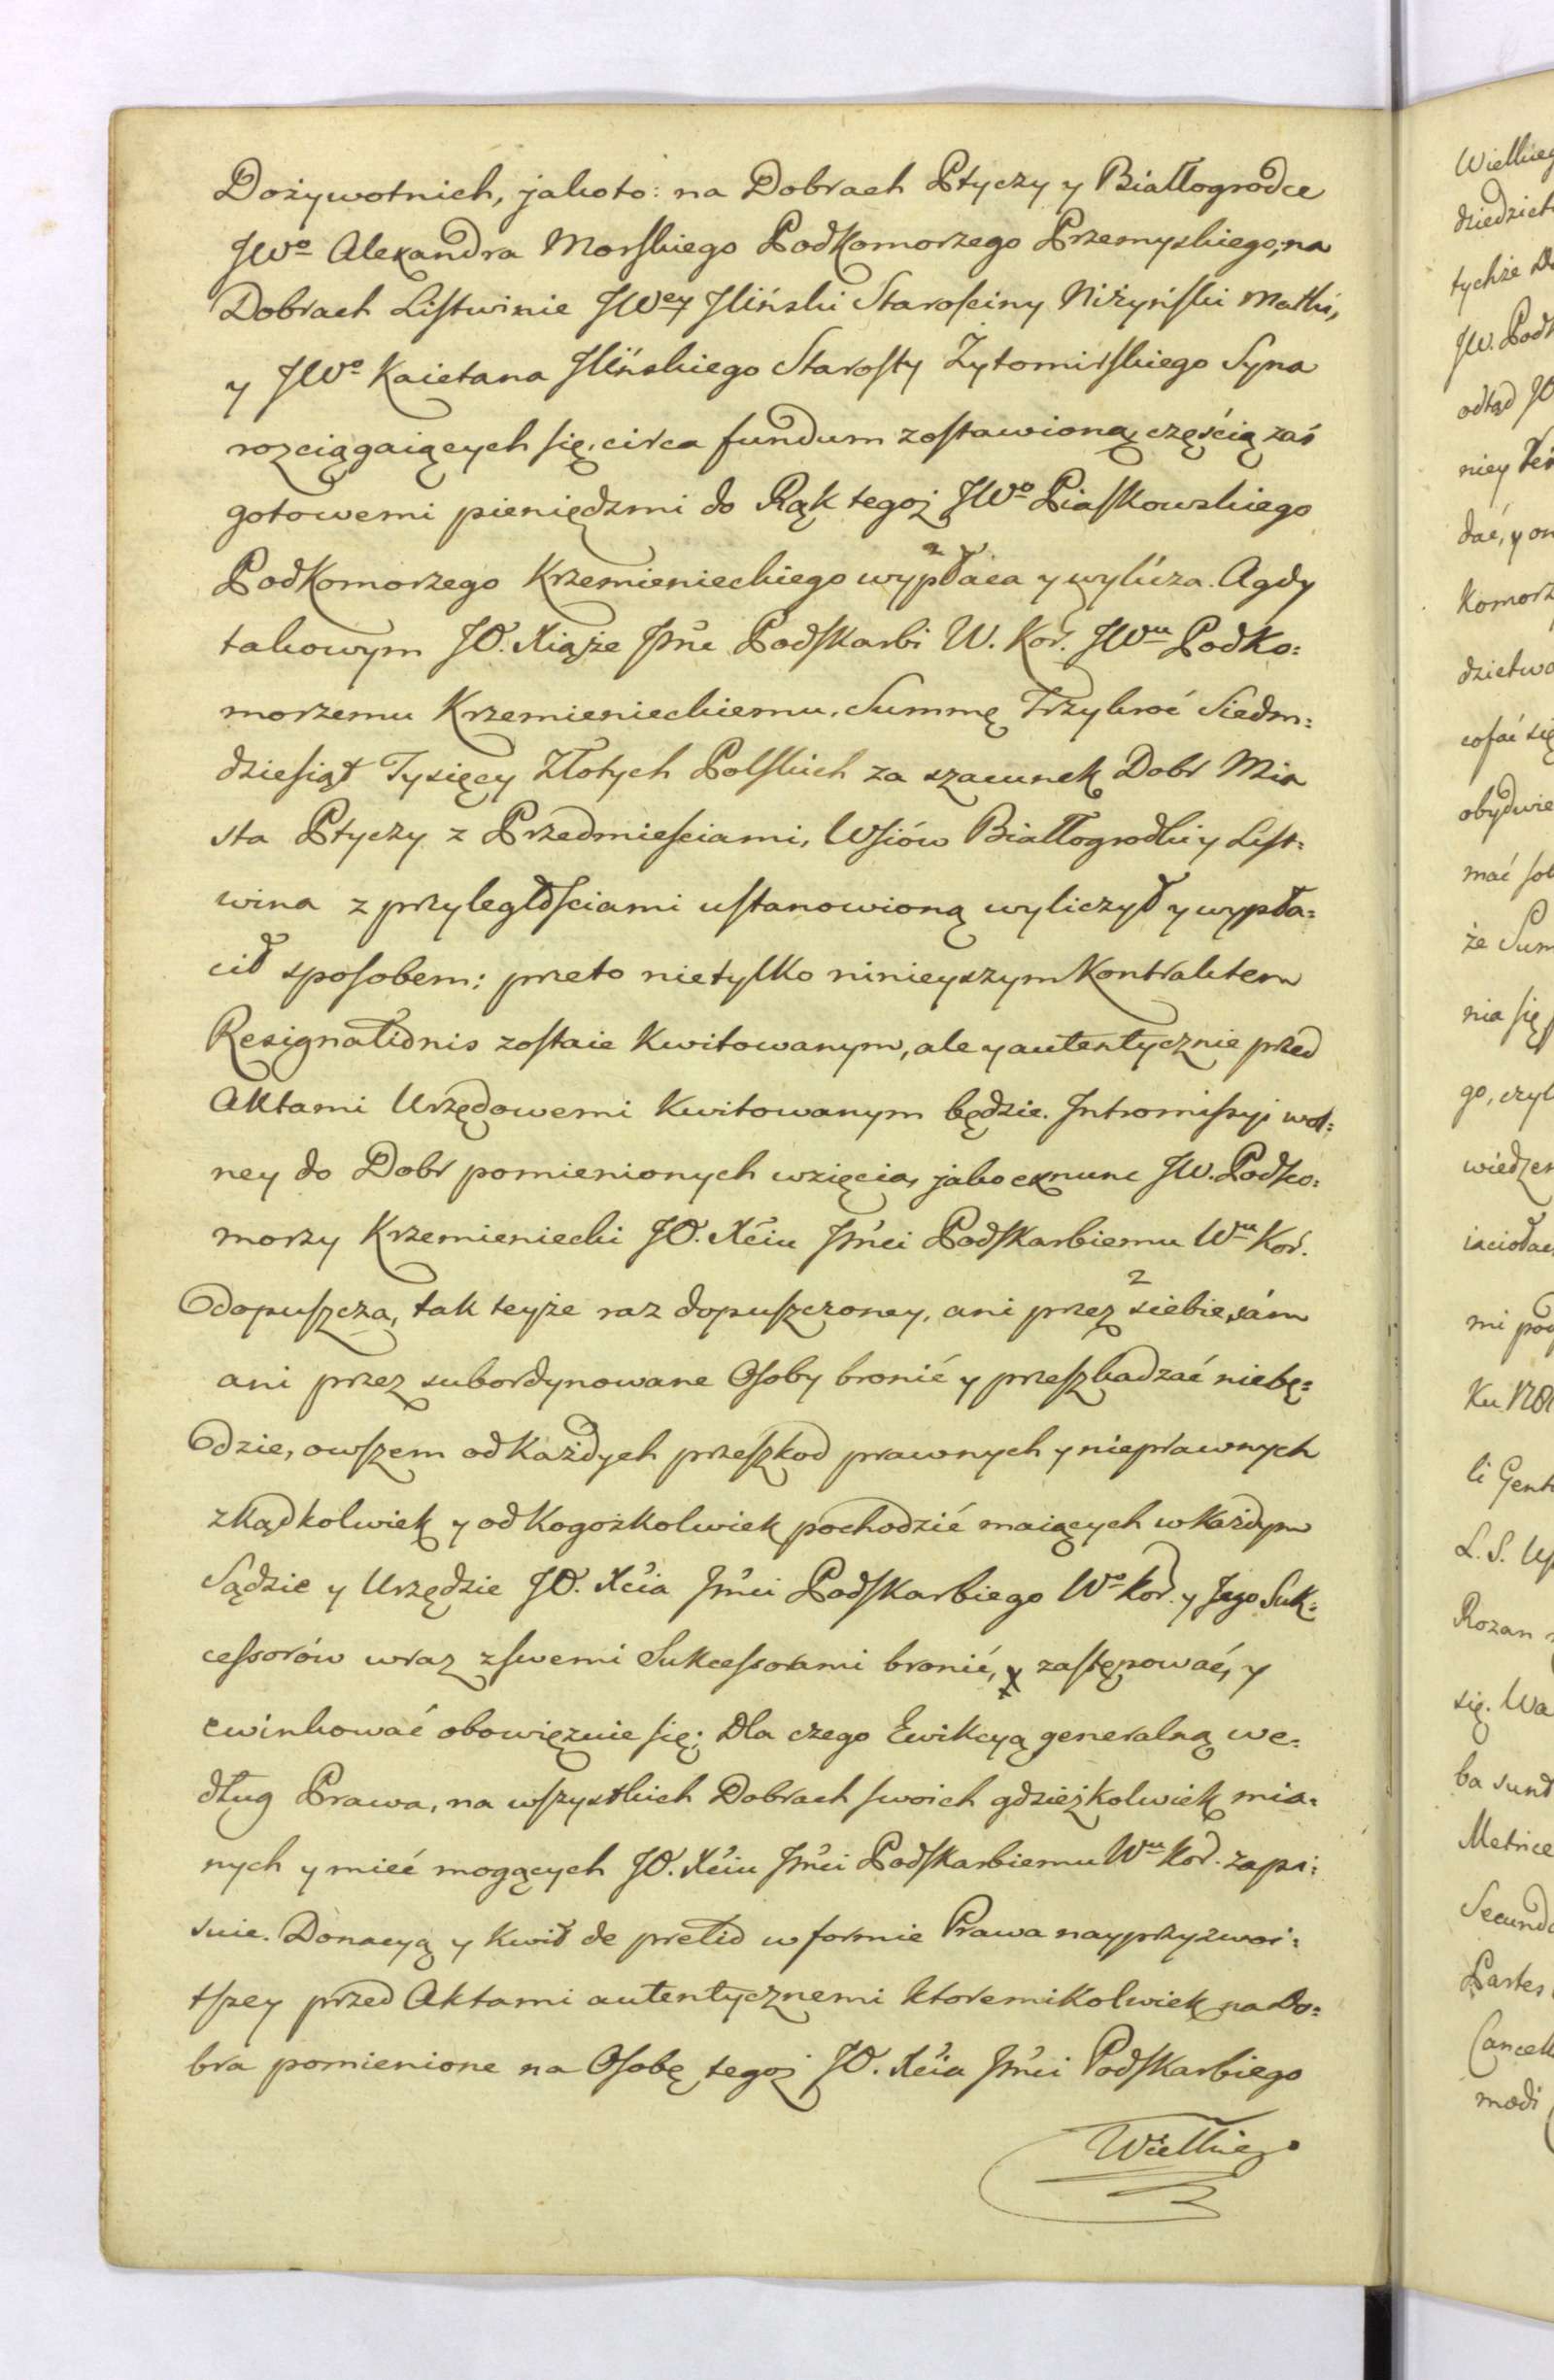 Dożywotnich, jakoto: na Dobrach Ptyczy y Białłogrodce
JWo Alexandra Morskiego Podkomorzego Przemyskiego, na
Dobrach Listwinie JWey Jliński Starościny Niżyński Matki,
y JWo Kaietana Jlińskiego Starosty Zytomirskiego Syna
rozciągaiących się, circa fundum zostawioną, częścią zaś
gotowemi pieniędzmi do Rąk tegoż JWo Piaskowskiego
Podkomorzego Krzemienieckiego wypłaca y wylicza. A gdy
takowym JO. Xiąże Jmć Podskarbi W. Kor. JWu Podko:
morzemu Krzemienieckiemu, Summę Trzykroć Siedm:
dziesiąt Tysięcy Złotych Polskich za szacunek Dobr Mia
sta Ptyczy z Przedmieściami, Wsiów Białłogrodki y List:
wina z przyległościami ustanowioną wyliczył y wypła:
cił sposobem; przeto nietylko ninieyszym Kontraktem
Resignationis zostaie kwitowanym, ale y autentycznie przed
Aktami Urzędowemi kwitowanym będzie. Intromissyi wol:
ney do Dobr pomienionych wzięcia, jako exnunc JW. Podko:
morzy Krzemieniecki JO. Xciu Jmci Podskarbiemu Wu Kor.
dopuszcza, tak teyże raz dopuszczoney, ani przez 2 siebie sám
ani przez subordynowane Osoby bronić y przeszkadzać niebę:
dzie, owszem od każdych przeszkod prawnych y nieprawnych
zkądkolwiek y od kogożkolwiek pochodzić maiących w każdym
Sądzie y Urzędzie JO. Xcia Jmci Podskarbiego Wo Kor. y Jego Suk:
cessorów wraz z swemi Sukcessorami bronić, zastępować, y
ewinkować obowięzuie się; Dla czego Ewikcyą generalną we:
dług Prawa, na wszystkich Dobrach swoich gdzieżkolwiek mia:
nych y mieć mogących JO. Xciu Jmci Podskarbiemu Wu Kor. zapi:
suie. Donacyą y kwit de pretio w formie Prawa nayprzyzwoi:
tszey przed Aktami autentycznemi ktoremikolwiek na Do:
bra pomienione na Osobę tegoż JO. Xcia Jmci Podskarbiego
Wielkiego